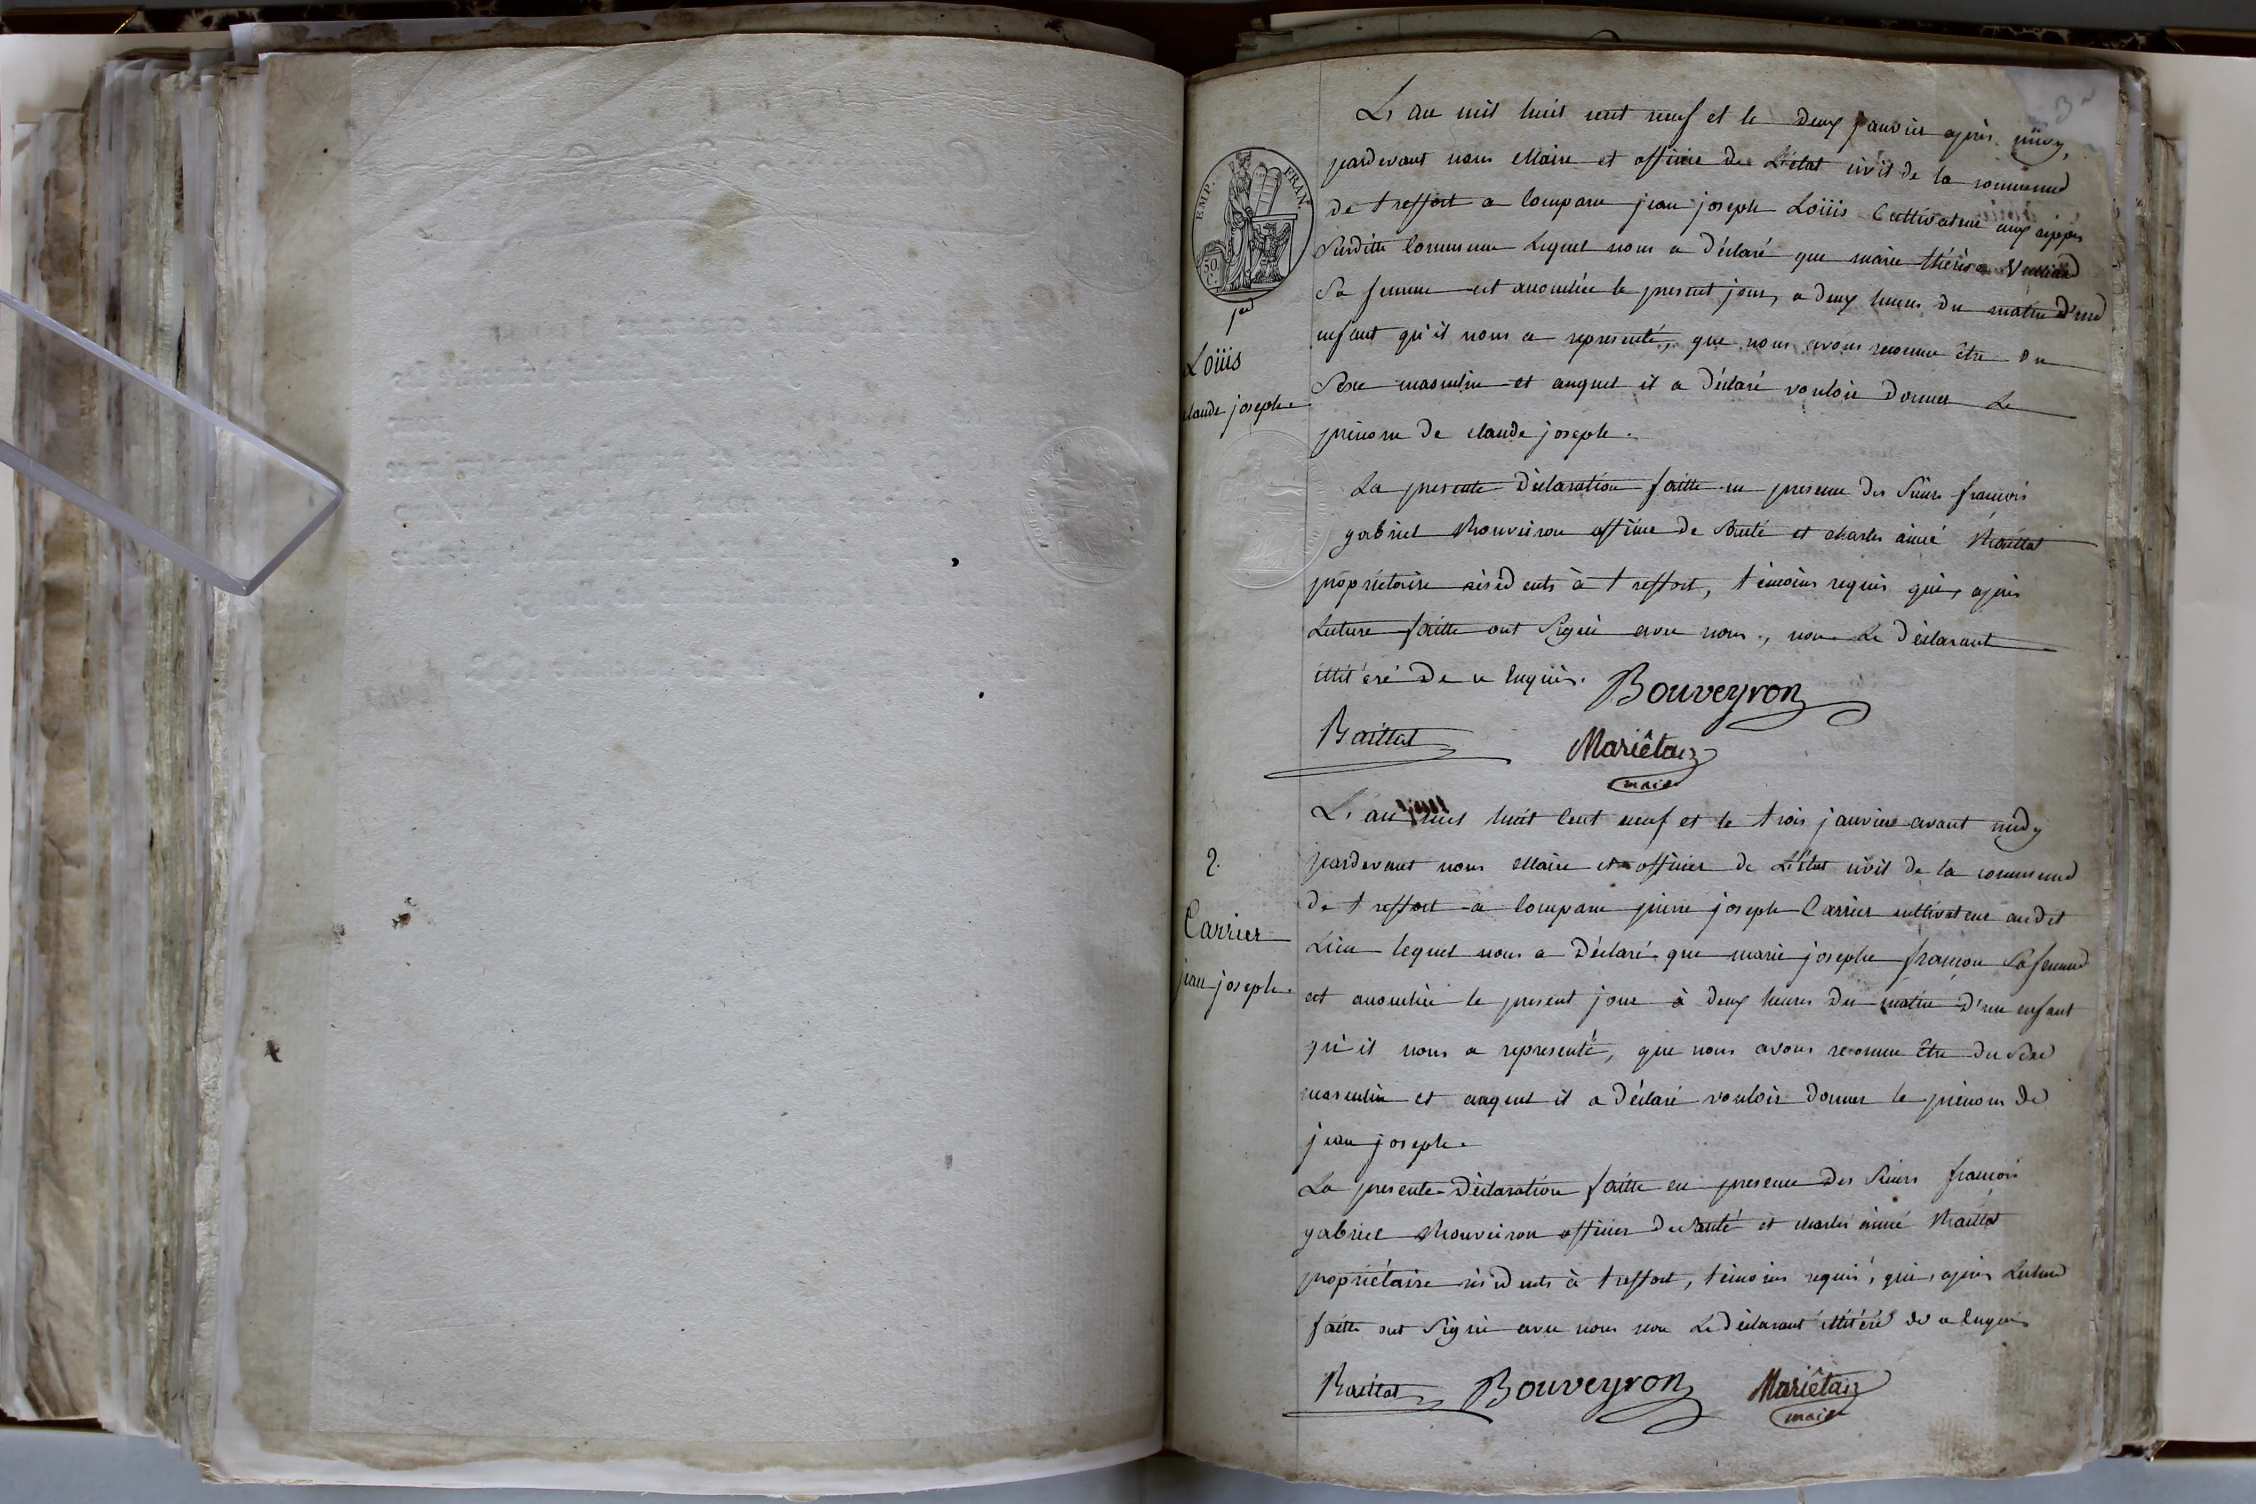 L'an mil huit cent neuf et le deux janvier après midy,
pardevant nous Maire et officier de L'état civil de la commune
de treffort a Comparu jean joseph Loüis Cultivateur aux
Susditte Commune Lequel nous a déclaré que marie thérèse
Sa femme est accouchée le present jour, a deux heures du matin d'un
enfant qu'il nous a representé, que nous avons reconnu être du
Sexe masculin et auquel il a déclaré vouloir donner Le
prénom de claude joseph.
La presente déclaration faitte en presence des Sieurs francois
gabriel Bouveiron officier de Santé et charles aimé Baillat
propriétaire résidents à treffort, témoins requis qui, après
Lecture faitte ont Signé avec nous, non Le déclarant
illitéré de ce Enquis.
Bouveyron
Baillat
Mariétan
maire
EMP. FRAN.
50 C.
1er
Loüis
claude joseph.
L'an mil huit Cent neuf et le trois janvier avant midy
pardevant nous Maire et officier de L'état civil de la commune
de treffort a Comparu pierre joseph Carrier cultivateur audit
Lieu lequel nous a déclaré que marie josephe Sa femme
est accouchée le present jour à deux heures du matin d'un enfant
qu'il nous a representé, que nous avons reconnu être du Sexe
masculin et auquel il a déclaré vouloir donner le prénom de
jean joseph.
La presente déclaration faitte en presence des Sieurs francois
gabriel Bouveiron officier de Santé et charles aimé Baillat
propriétaire résidents à treffort, témoins requis, qui, après Lecture
faitte ont Signé avec nous non Le déclarant illitéré de ce Enquis
Baillat Bouveyron Mariétan
maire
2.
Carrier
jean joseph.